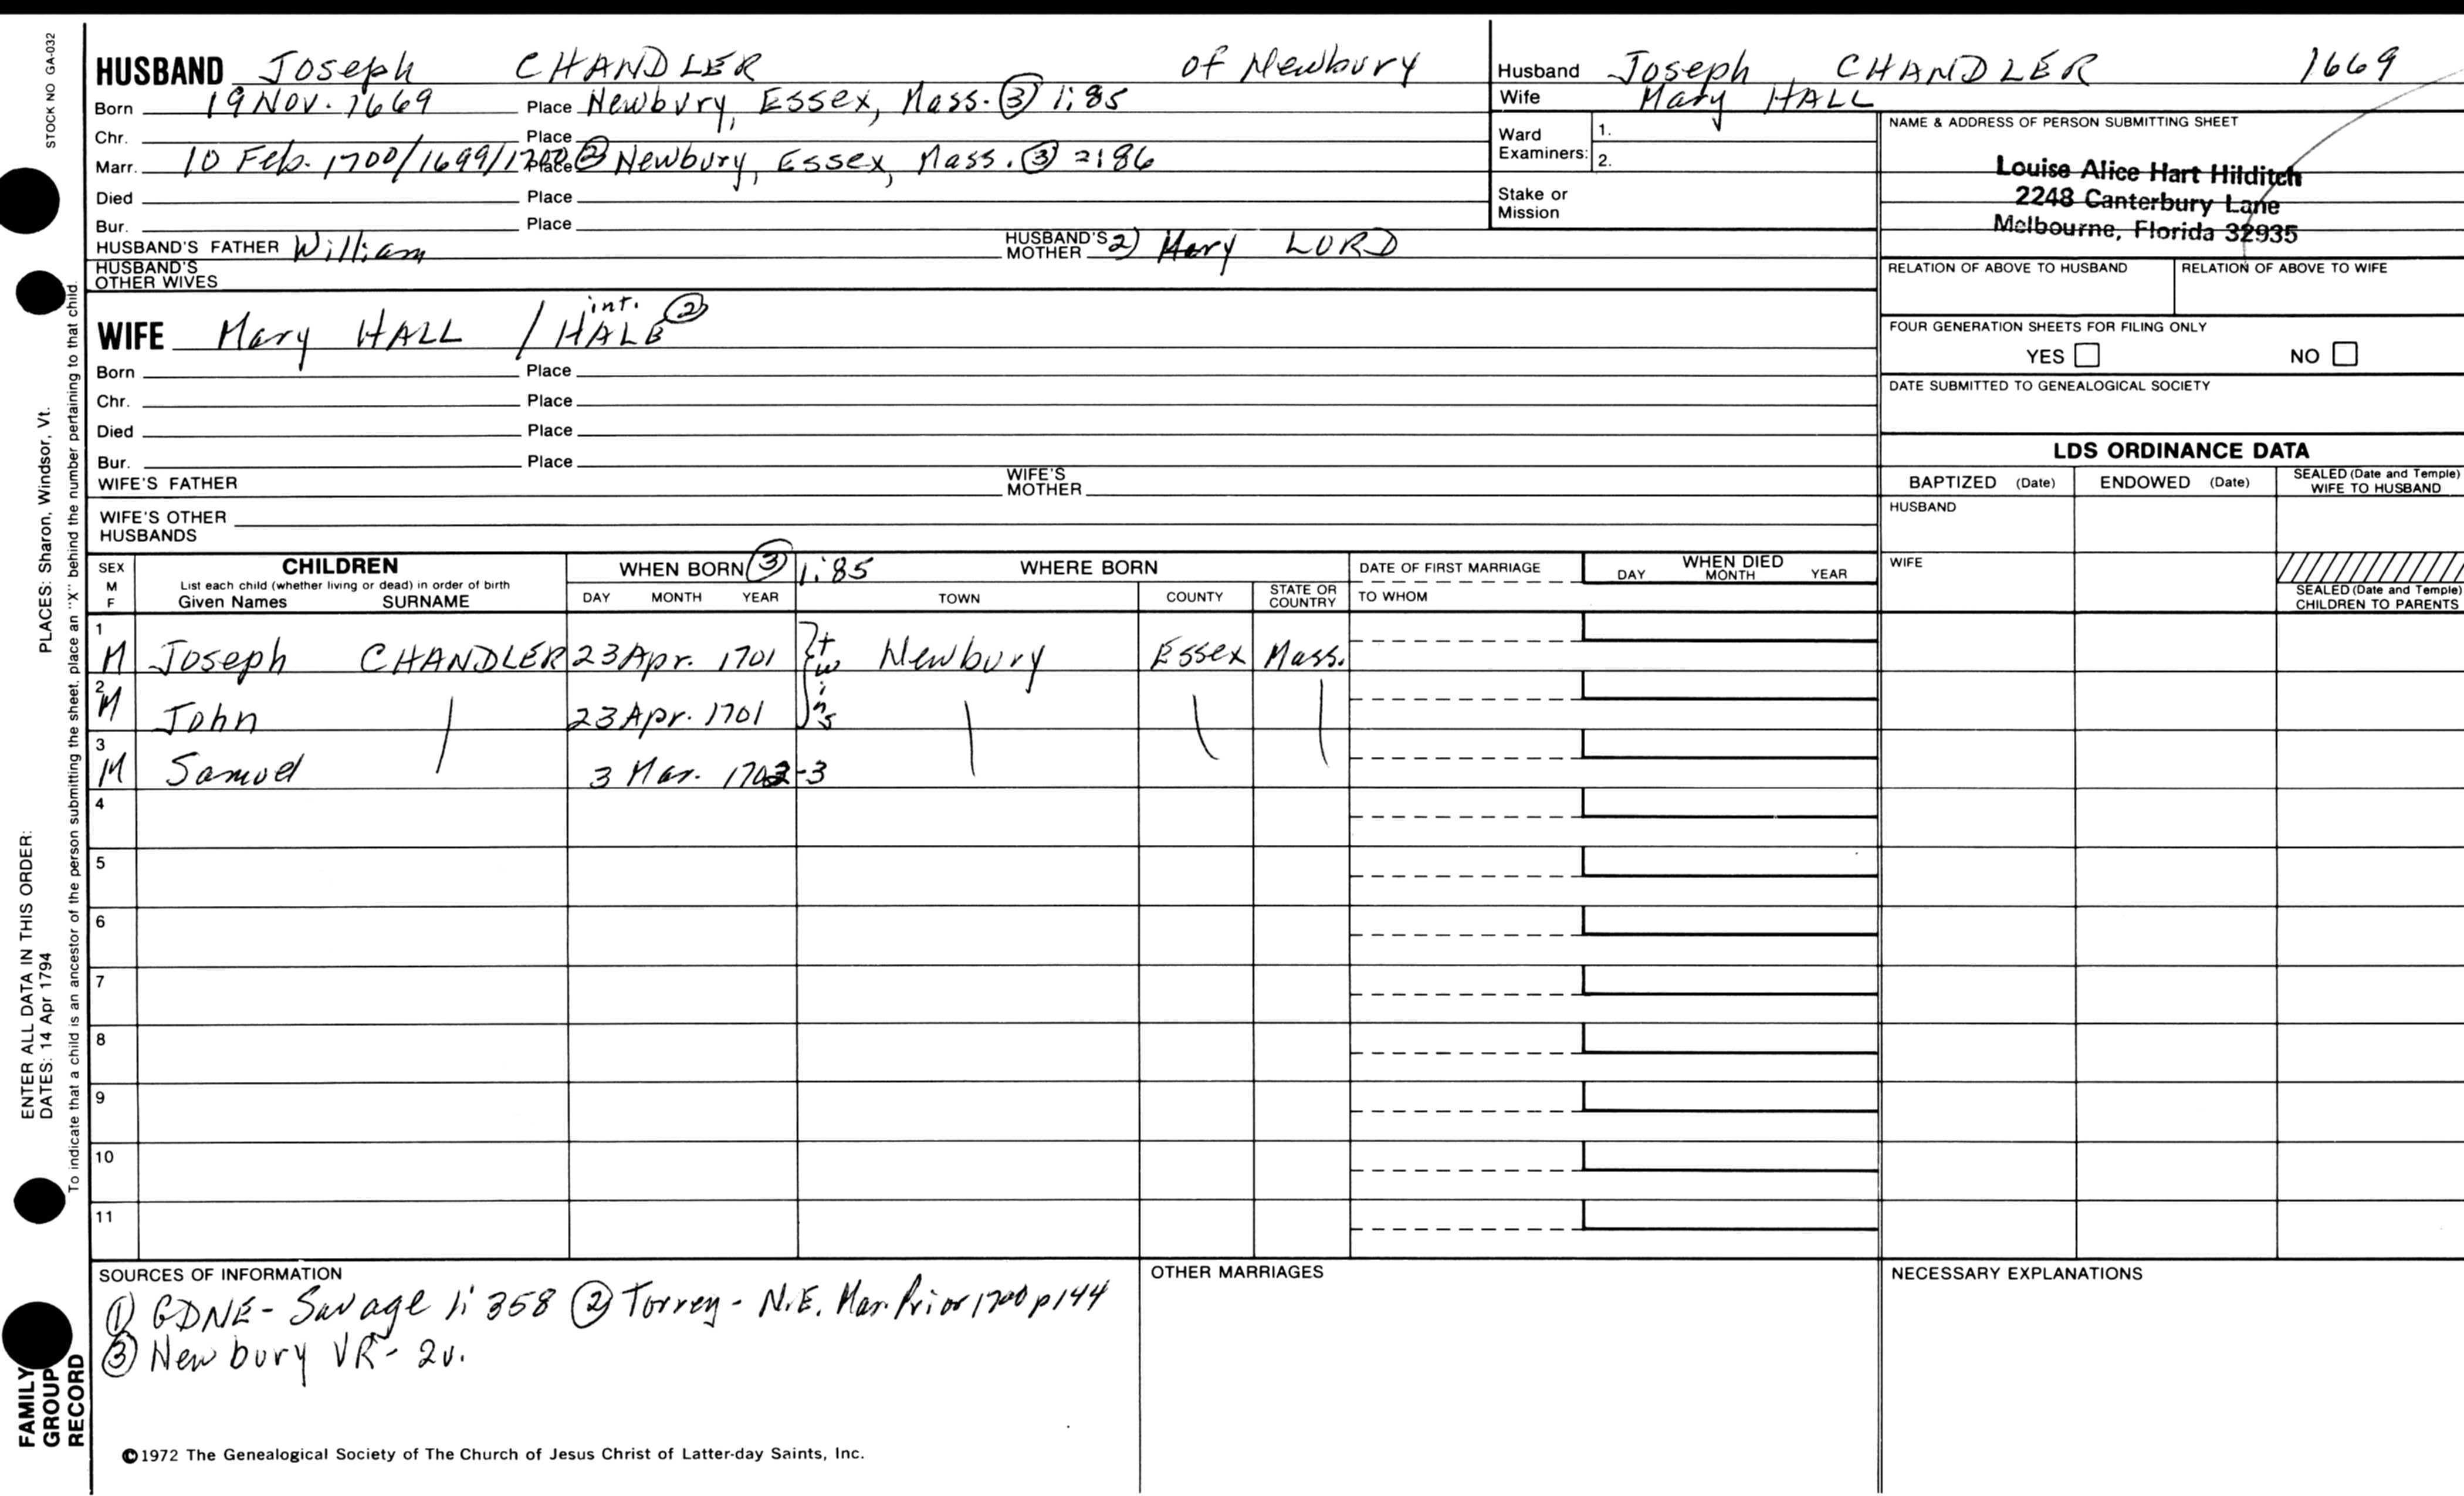 STOCK NO GA-032
HUSBAND Joseph CHANDLER of Newbury
Born 19 Nov. 1669 Place Newbury, Essex, Mass. ③ 1:85
Chr. Place
Marr. 10 Feb. 1700/1699/1700 ② Place Newbury, Essex, Mass. ③ 2:86
Died Place
Bur. Place
HUSBAND'S FATHER William HUSBAND'S MOTHER 2) Mary LORD
HUSBAND'S OTHER WIVES
Husband Joseph CHANDLER 1669
Wife Mary HALL
Ward Examiners: 1.
2.
Stake or Mission
NAME & ADDRESS OF PERSON SUBMITTING SHEET
Louise Alice Hart Hilditch
2248 Canterbury Lane
Melbourne, Florida 32935
RELATION OF ABOVE TO HUSBAND RELATION OF ABOVE TO WIFE
FOUR GENERATION SHEETS FOR FILING ONLY
YES NO
DATE SUBMITTED TO GENEALOGICAL SOCIETY
int.
WIFE Mary HALL / HALE ②
Born Place
Chr. Place
Died Place
Bur. Place
WIFE'S FATHER WIFE'S MOTHER
WIFE'S OTHER HUSBANDS
LDS ORDINANCE DATA
BAPTIZED (Date) ENDOWED (Date) SEALED (Date and Temple) WIFE TO HUSBAND
HUSBAND
WIFE
SEALED (Date and Temple) CHILDREN TO PARENTS
SEX M F
CHILDREN
List each child (whether living or dead) in order of birth
Given Names SURNAME
WHEN BORN ③ 1:85 WHERE BORN
DAY MONTH YEAR TOWN COUNTY STATE OR COUNTRY
DATE OF FIRST MARRIAGE
TO WHOM
WHEN DIED
DAY MONTH YEAR
1 M Joseph CHANDLER 23 Apr. 1701 twins Newbury Essex Mass.
2 M John 23 Apr. 1701
3 M Samuel 3 Mar. 1702-3
4
5
6
7
8
9
10
11
SOURCES OF INFORMATION
① GDNE - Savage 1:358 ② Torrey - N.E. Mar. Prior 1700 p144
③ Newbury VR - 2v.
OTHER MARRIAGES
NECESSARY EXPLANATIONS
©1972 The Genealogical Society of The Church of Jesus Christ of Latter-day Saints, Inc.
PLACES: Sharon, Windsor, Vt.
ENTER ALL DATA IN THIS ORDER:
DATES: 14 Apr 1794
To indicate that a child is an ancestor of the person submitting the sheet, place an "X" behind the number pertaining to that child.
FAMILY GROUP RECORD